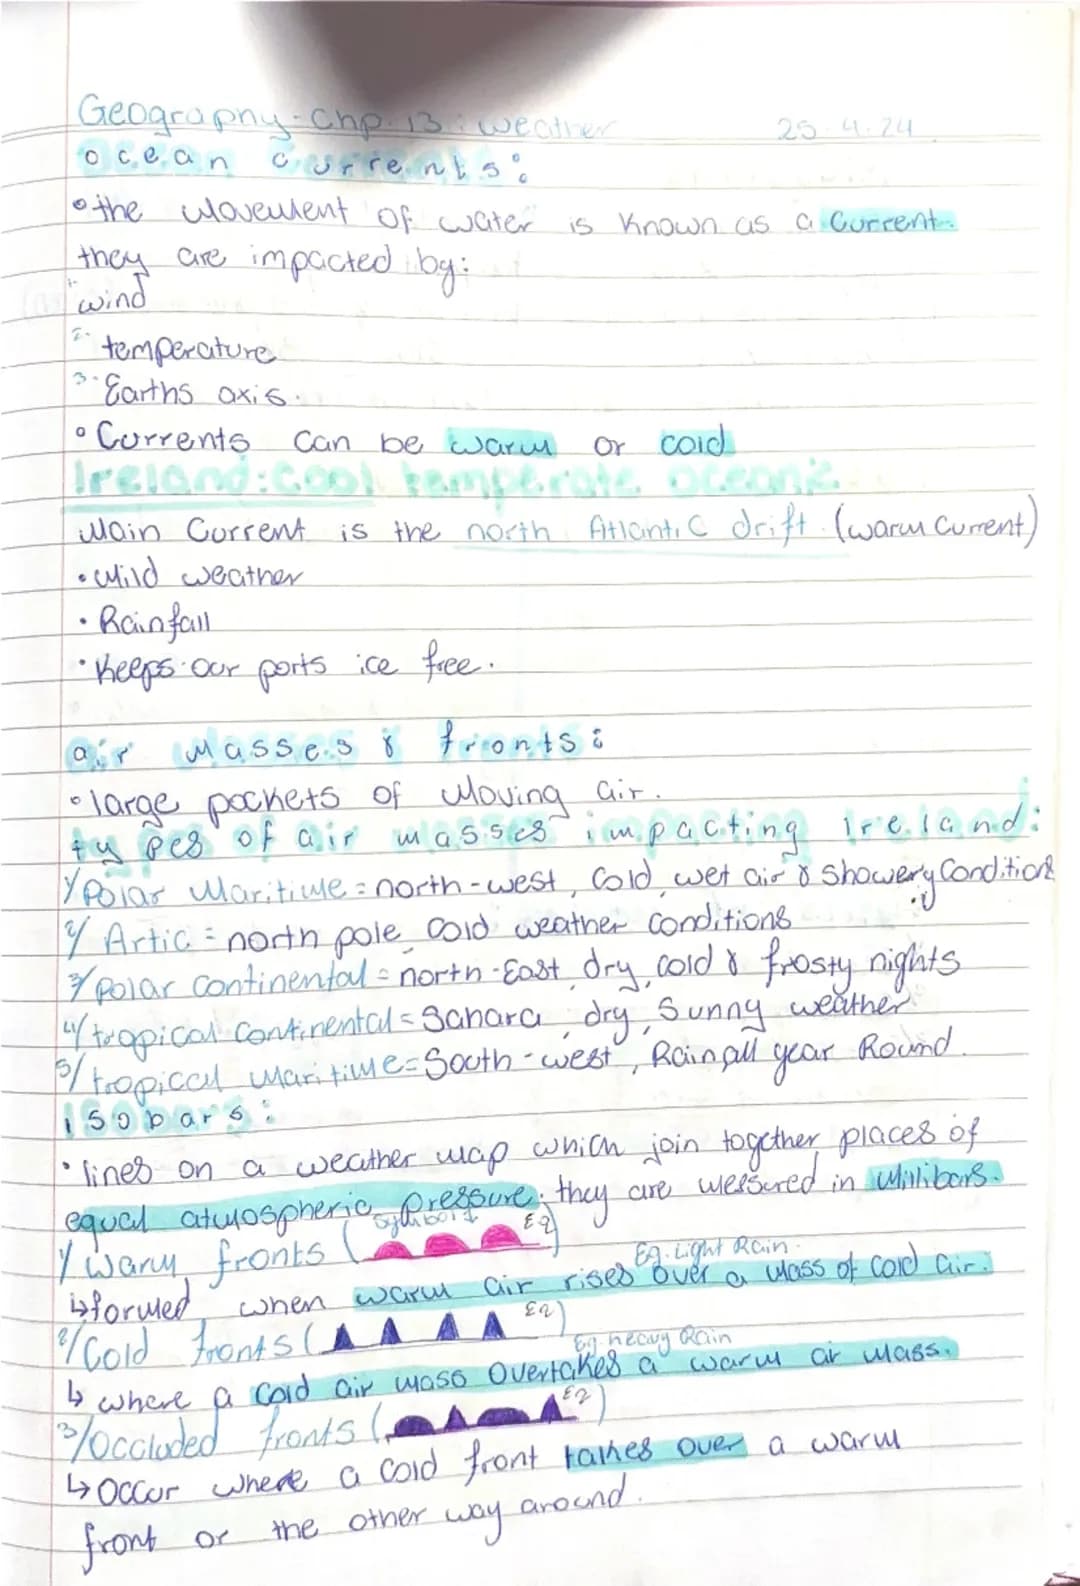 Geography - Chp. 13: Weather 25.4.24
Ocean Currents:
• the Movement of water is known as a Current.
they are impacted by:
1. wind
2. temperature
3. Earths axis.
• Currents can be warm or cold
Ireland: Cool temperate oceanic
Main Current is the north Atlantic drift. (warm Current)
• Mild weather
• Rainfall
• Keeps our ports ice free.
air Masses & fronts:
• large pockets of Moving air.
types of air masses impacting Ireland:
1/ Polar Maritime = north-west, Cold, wet air & Showery Conditions
2/ Artic = north pole, Cold weather conditions
3/ Polar Continental = north-East, dry, cold & frosty nights
4/ tropical Continental = Sahara, dry, Sunny weather
5/ tropical Maritime = South-west, Rain all year Round.
isobars:
• lines on a weather map which join together places of
equal atmospheric pressure. they are messured in Millibars.
1/ Warm fronts ( Symbols Eq)
Eg. Light Rain.
↳ formed when warm air rises over a Mass of Cold air.
2/ Cold fronts ( Eq)
Eg. heavy Rain
↳ where a Cold air mass Overtakes a warm air Mass.
3/ Occluded fronts ( Eq)
↳ Occur where a Cold front takes over a warm
front or the other way around.